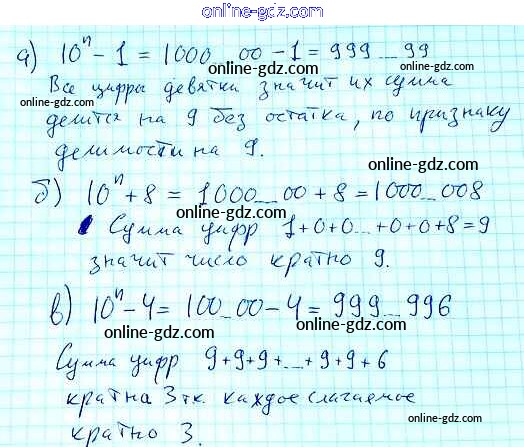 online-gdz.com
а) 10ⁿ - 1 = 1000...00 - 1 = 999...99
online-gdz.com
Все цифры девятки значит их сумма
online-gdz.com online-gdz.com
делится на 9 без остатка, по признаку
делимости на 9.
online-gdz.com
б) 10ⁿ + 8 = 1000...00 + 8 = 1000...008
online-gdz.com
Сумма цифр 1+0+0...+0+0+8=9
online-gdz.com
значит число кратно 9.
online-gdz.com
в) 10ⁿ - 4 = 100...00 - 4 = 999...996
online-gdz.com
Сумма цифр 9+9+9+...+9+9+6
online-gdz.com
кратна 3 т.к. каждое слагаемое
online-gdz.com
кратно 3.
online-gdz.com